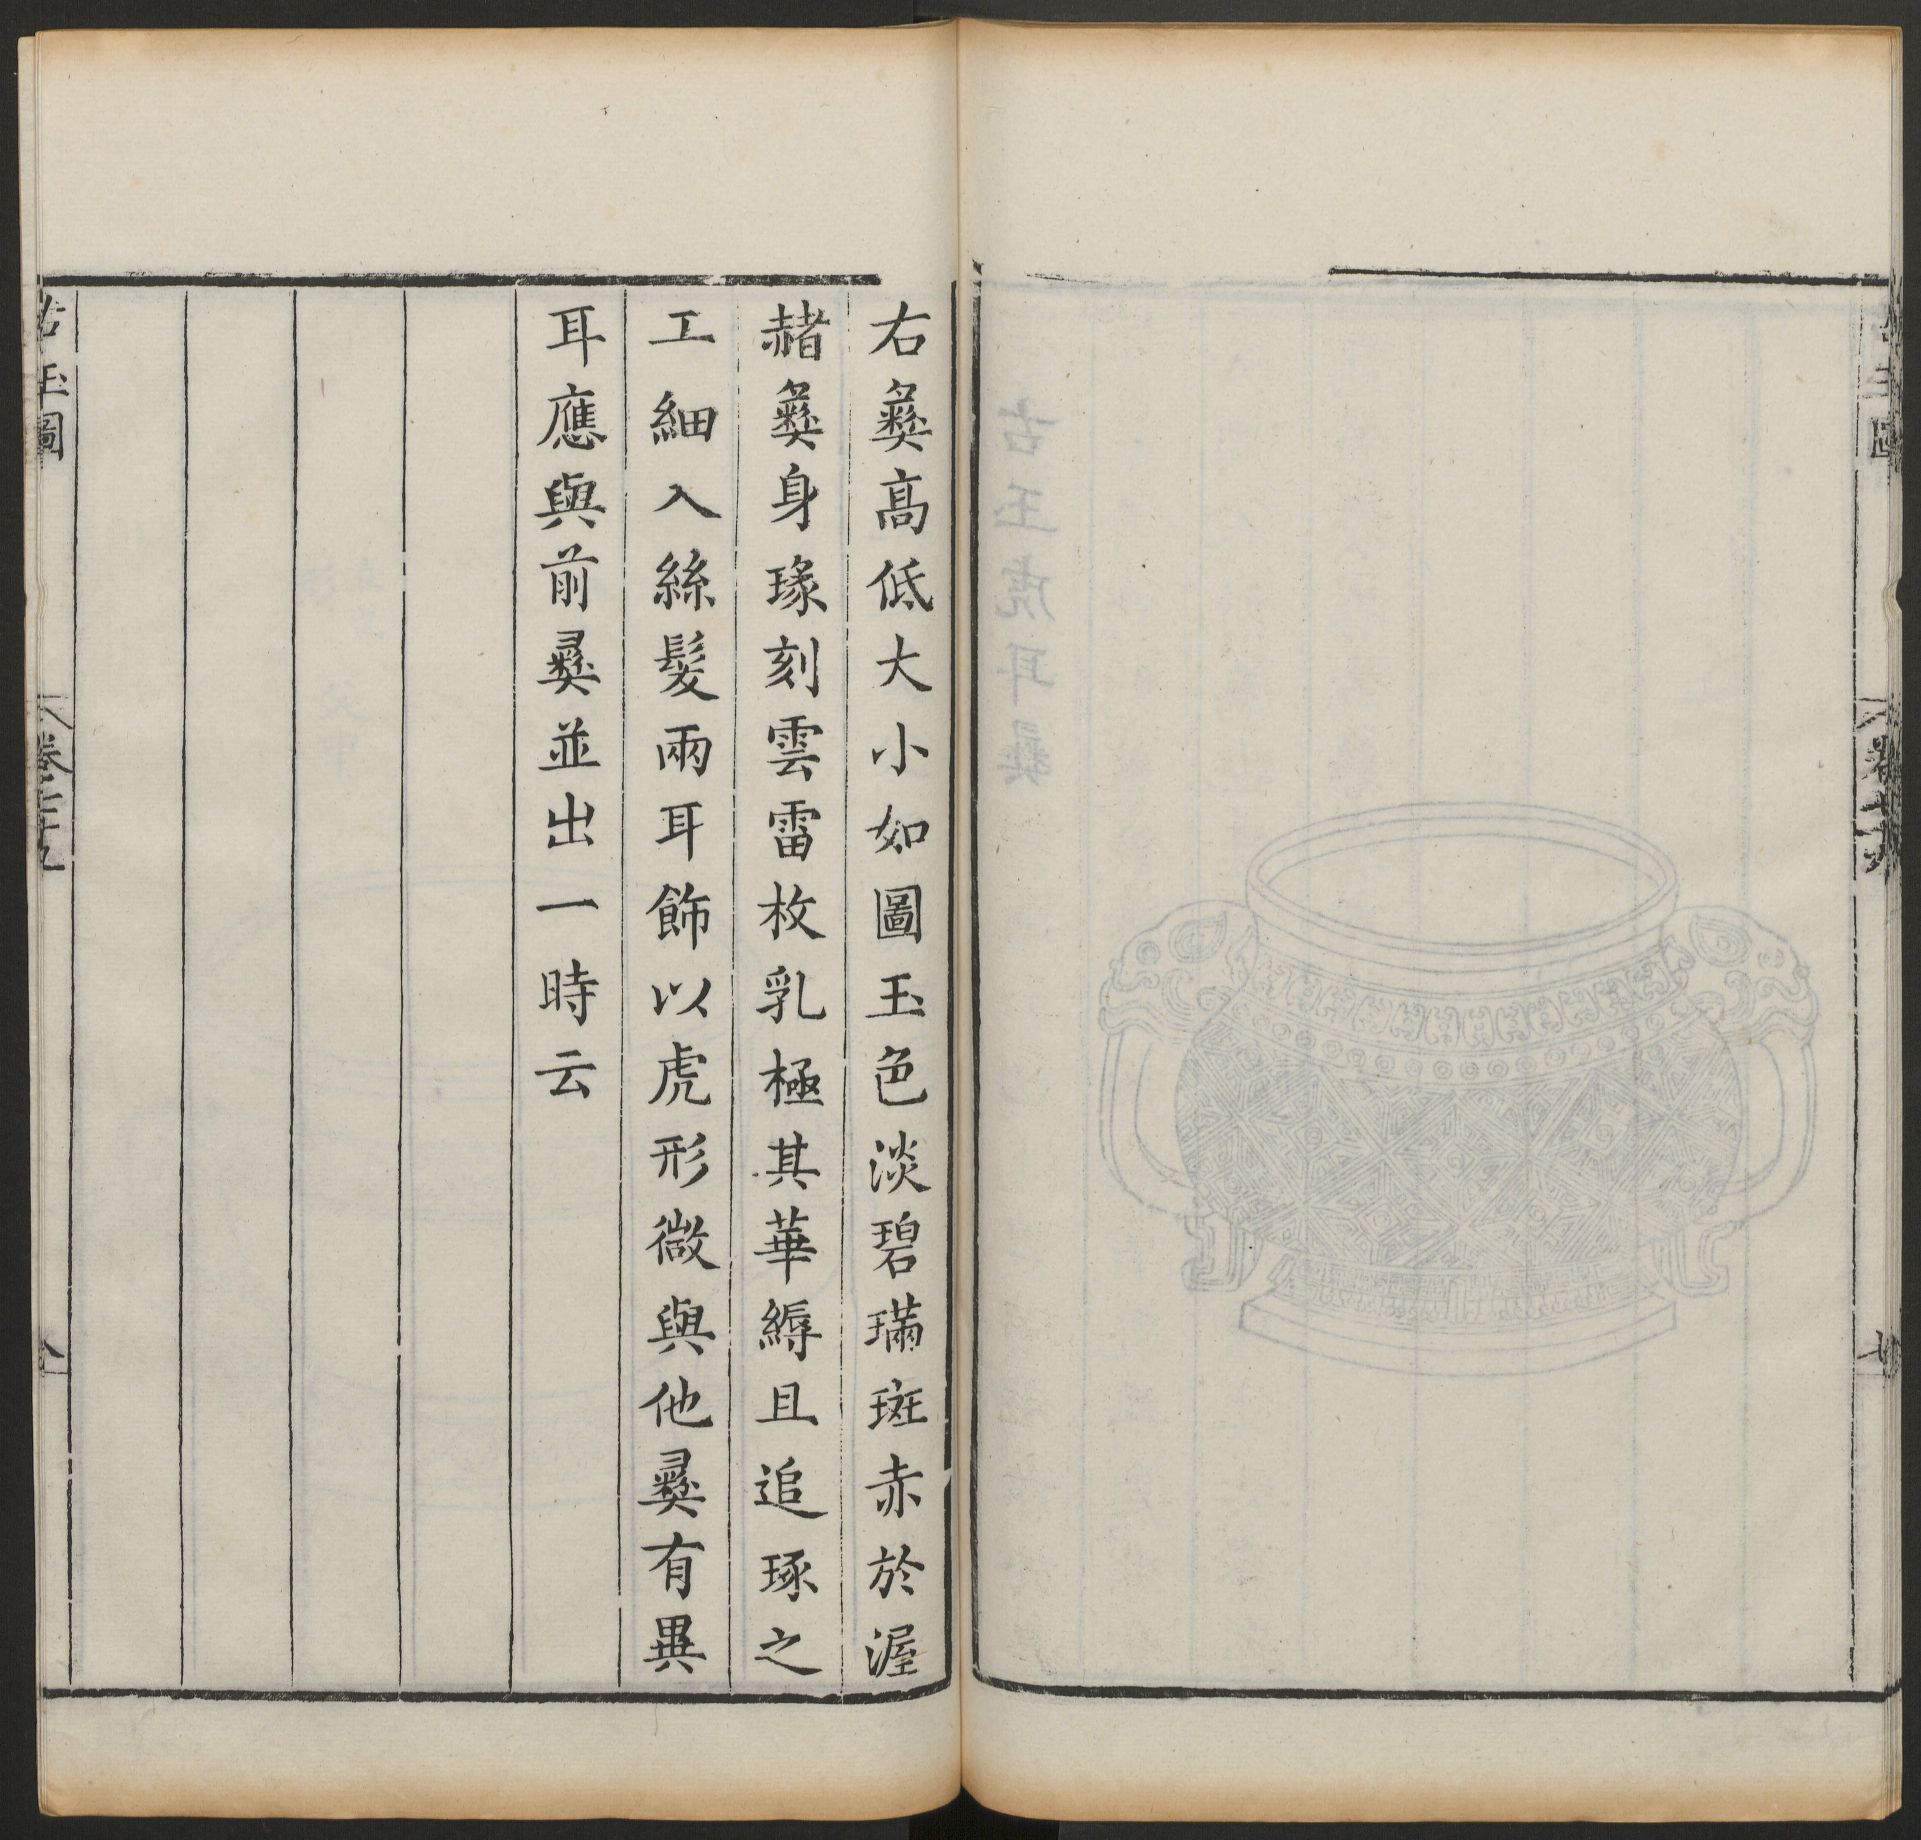 右彝高低大小如圖玉色淡碧璊斑赤於渥
赭彝身瑑刻雲雷枚乳極其華縟且追琢之
工細入絲髮兩耳飾以虎形微與他彝有異
耳應與前彝並出一時云
古玉圖
卷二十九
古玉虎耳彝